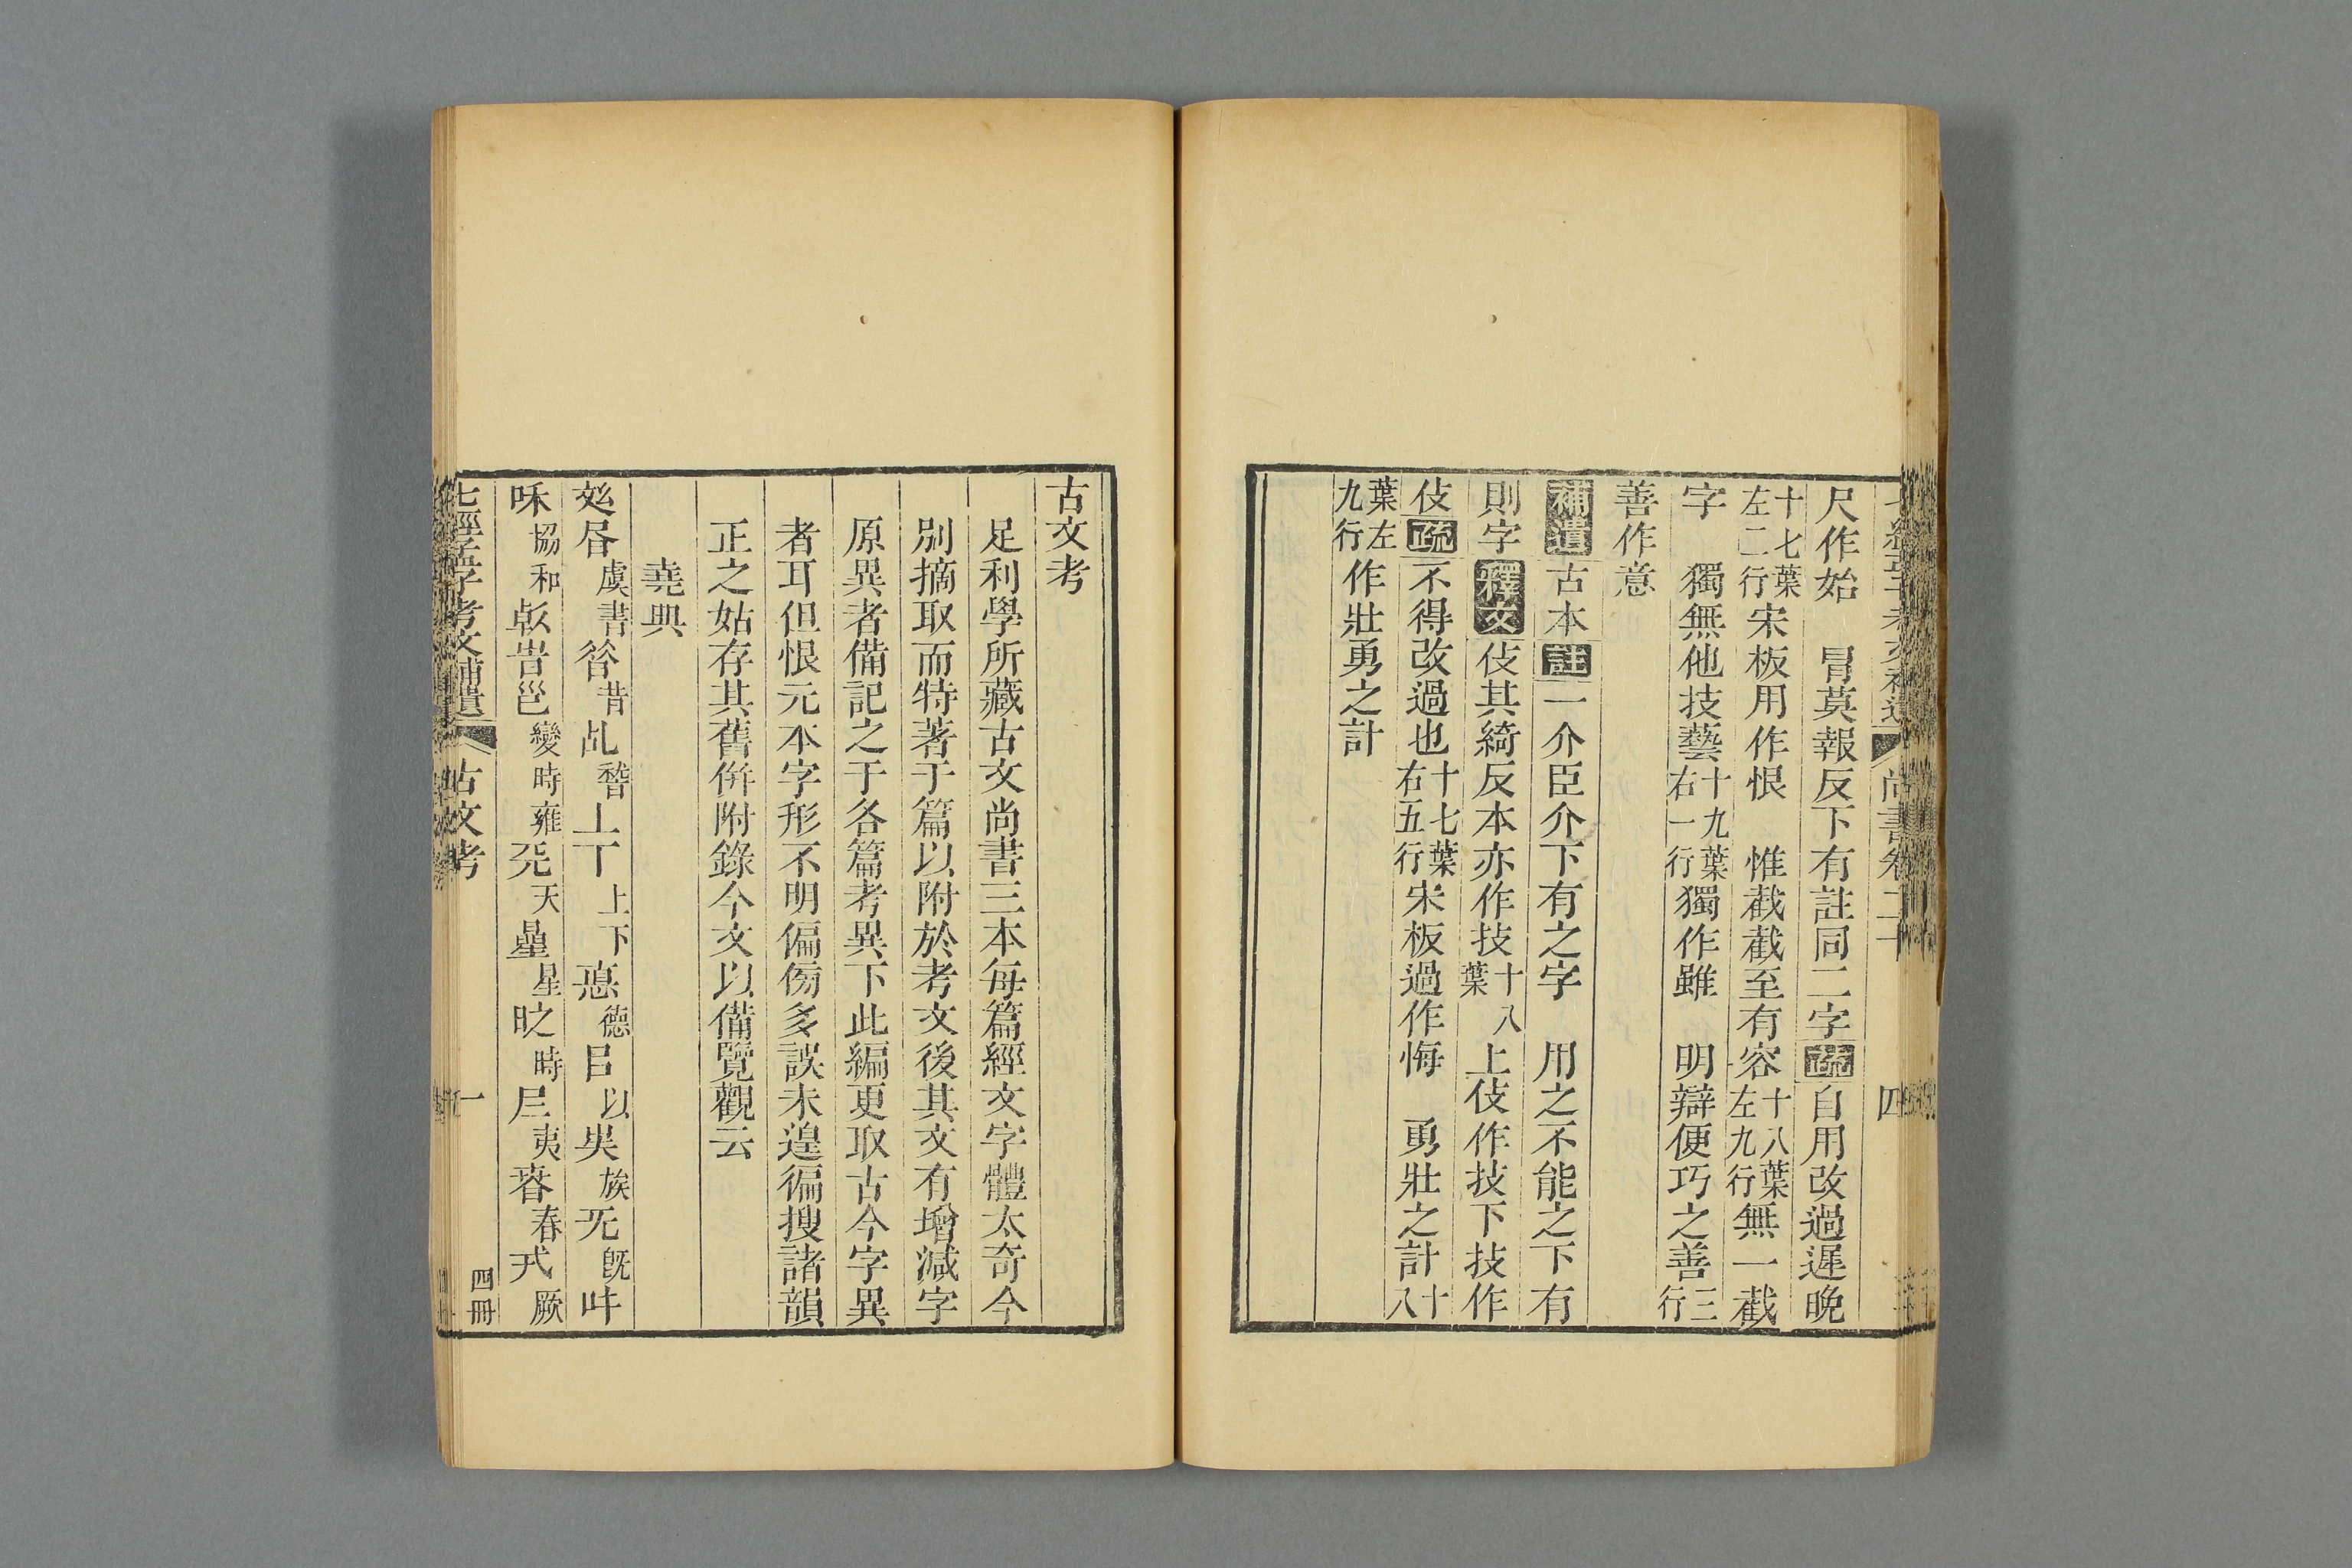 尚書卷二十
四
尺作始　冐莫報反下有註同二字疏自用改過遲晚
十七葉左二行宋板用作恨　惟截截至有容十八葉左九行無一截
字　獨無他技藝十九葉右一行獨作雖　明辯便巧之善三行
善作意
補遺古本註一介臣介下有之字　用之不能之下有
則字釋文伎其綺反本亦作技十八葉上伎作技下技作
伎疏不得改過也十七葉右五行宋板過作悔　勇壯之計十八
葉左九行作壯勇之計
古文考
足利學所藏古文尚書三本每篇經文字體太奇今
別摘取而特著于篇以附於考文後其文有增減字
原異者備記之于各篇考異下此編更取古今字異
者耳但恨元本字形不明偏傍多誤未遑徧搜諸韻
正之姑存其舊倂附錄今文以備覽觀云
堯典
虞書昔乩稽丄丅上下悳德㠯以族旡旣
咊協和變時雍天曐星時𡰥夷春厥
七經孟子考文補遺　古文考
一
四冊